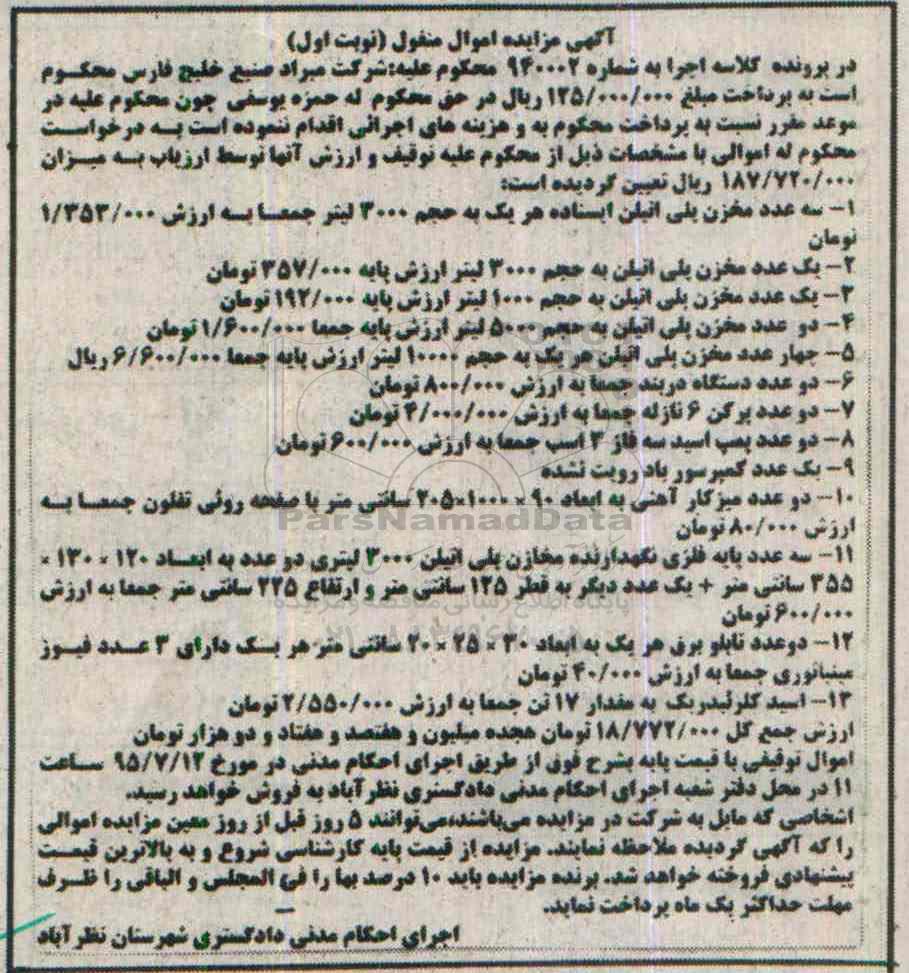 آگهی مزایده اموال منقول (نوبت اول)
در پرونده کلاسه اجرا به شماره ۹۴۰۰۰۲ محکوم علیه:شرکت میراد صنیع خلیج فارس محکوم
است به پرداخت مبلغ ۱۲۵/۰۰۰/۰۰۰ ریال در حق محکوم له حمزه یوسفی چون محکوم علیه در
موعد مقرر نسبت به پرداخت محکوم به و هزینه های اجرائی اقدام ننموده است به درخواست
محکوم له اموالی با مشخصات ذیل از محکوم علیه توقیف و ارزش آنها توسط ارزیاب به میزان
۱۸۷/۷۲۰/۰۰۰ ریال تعیین گردیده است:
۱- سه عدد مخزن پلی اتیلن ایستاده هر یک به حجم ۳۰۰۰ لیتر جمعا به ارزش ۱/۳۵۳/۰۰۰
تومان
۲- یک عدد مخزن پلی اتیلن به حجم ۳۰۰۰ لیتر ارزش پایه ۳۵۷/۰۰۰ تومان
۳- یک عدد مخزن پلی اتیلن به حجم ۱۰۰۰ لیتر ارزش پایه ۱۹۲/۰۰۰ تومان
۴- دو عدد مخزن پلی اتیلن به حجم ۵۰۰۰ لیتر ارزش پایه جمعا ۱/۶۰۰/۰۰۰ تومان
۵- چهار عدد مخزن پلی اتیلن هر یک به حجم ۱۰۰۰۰ لیتر ارزش پایه جمعا ۶/۶۰۰/۰۰۰ ریال
۶- دو عدد دستگاه دربند جمعا به ارزش ۸۰۰/۰۰۰ تومان
۷- دو عدد پرکن ۶ نازله جمعا به ارزش ۴/۰۰۰/۰۰۰ تومان
۸- دو عدد پمپ اسید سه فاز ۳ اسب جمعا به ارزش ۶۰۰/۰۰۰ تومان
۹- یک عدد کمپرسور باد رویت نشده
۱۰- دو عدد میزکار آهنی به ابعاد ۹۰ × ۱۰۰۰×۲۰۵ سانتی متر با صفحه روئی تفلون جمعا به
ارزش ۸۰/۰۰۰ تومان
ParsNamadData
۱۱- سه عدد پایه فلزی نگهدارنده مخازن پلی اتیلن ۳۰۰۰ لیتری دو عدد به ابعاد ۱۲۰ × ۱۳۰ ×
۳۵۵ سانتی متر + یک عدد دیگر به قطر ۱۲۵ سانتی متر و ارتفاع ۲۲۵ سانتی متر جمعا به ارزش
۶۰۰/۰۰۰ تومان
پایگاه اطلاع رسانی مناقصه و مزایده
۱۲- دوعدد تابلو برق هر یک به ابعاد ۳۰ × ۲۵ × ۲۰ سانتی متر هر یک دارای ۳ عدد فیوز
مینیاتوری جمعا به ارزش ۴۰/۰۰۰ تومان
۱۳- اسید کلرئیدریک به مقدار ۱۷ تن جمعا به ارزش ۲/۵۵۰/۰۰۰ تومان
ارزش جمع کل ۱۸/۷۷۲/۰۰۰ تومان هجده میلیون و هفتصد و هفتاد و دو هزار تومان
اموال توقیفی با قیمت پایه بشرح فوق از طریق اجرای احکام مدنی در مورخ ۹۵/۷/۱۲ ساعت
۱۱ در محل دفتر شعبه اجرای احکام مدنی دادگستری نظرآباد به فروش خواهد رسید.
اشخاصی که مایل به شرکت در مزایده می‌باشند،می‌توانند ۵ روز قبل از روز معین مزایده اموالی
را که آگهی گردیده ملاحظه نمایند. مزایده از قیمت پایه کارشناسی شروع و به بالاترین قیمت
پیشنهادی فروخته خواهد شد. برنده مزایده باید ۱۰ درصد بها را فی المجلس و الباقی را ظرف
مهلت حداکثر یک ماه پرداخت نماید.
اجرای احکام مدنی دادگستری شهرستان نظرآباد